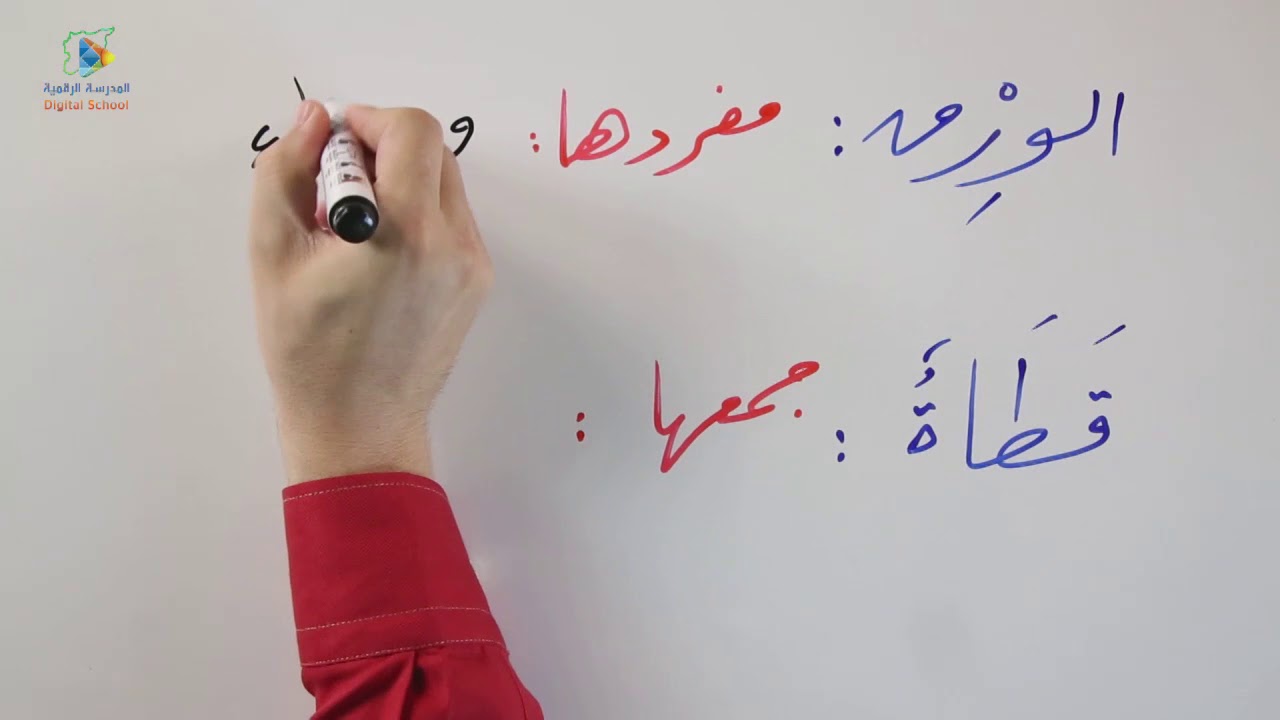 المدرسة الرقمية
Digital School
الوِرْق : مفردها :
قَطَاةٌ : جمعها :